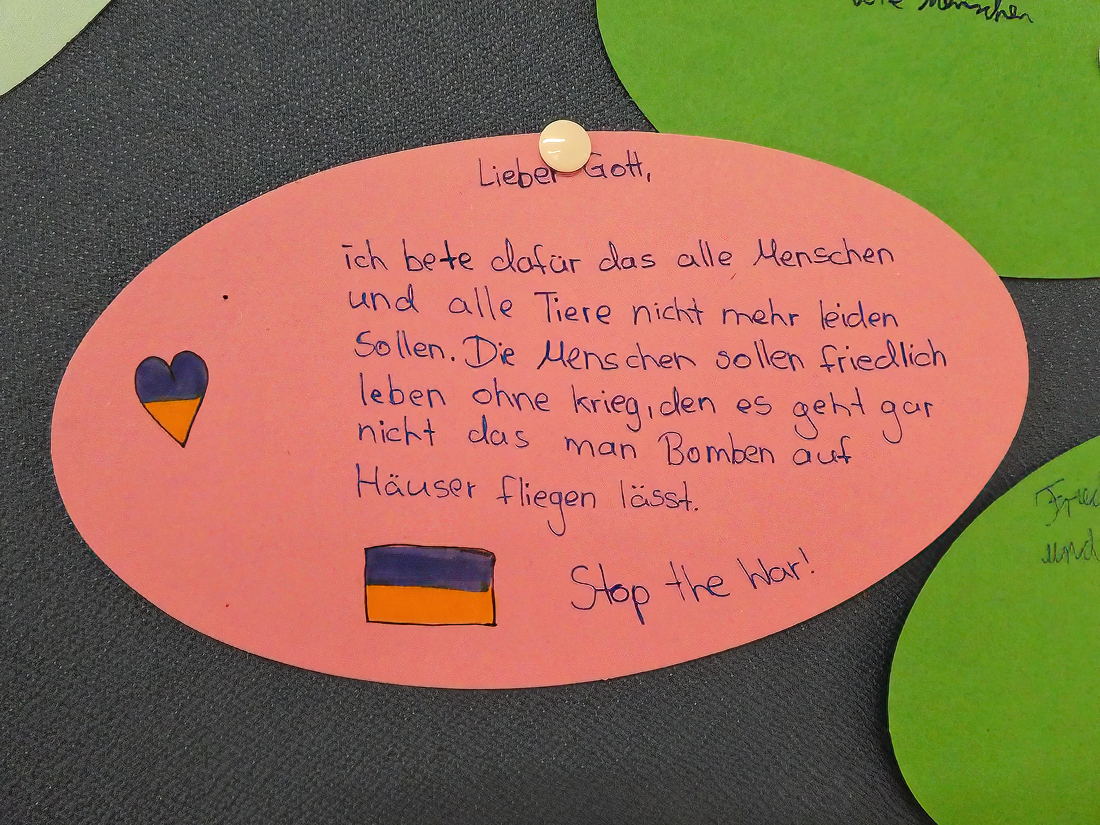 Menschen
Lieber Gott,
ich bete dafür das alle Menschen
und alle Tiere nicht mehr leiden
Sollen. Die Menschen sollen friedlich
leben ohne krieg, den es geht gar
nicht das man Bomben auf
Häuser fliegen lässt.
Stop the War!
und